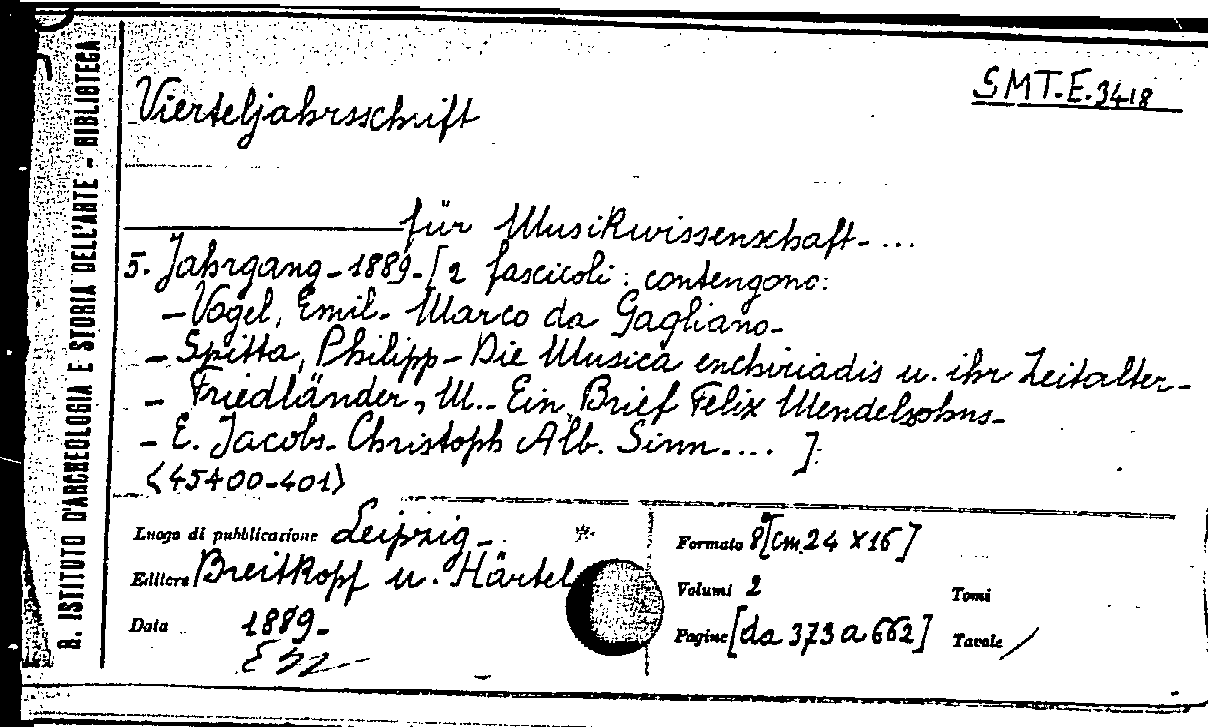 R. ISTITUTO D'ARCHEOLOGIA E STORIA DELL'ARTE - BIBLIOTECA
SMT.E.3418
Vierteljahrsschrift
für Musikwissenschaft-...
5. Jahrgang-1889-[2 fascicoli: contengono:
-Vogel, Emil- Marco da Gagliano-
- Spitta, Philipp- Die Musica enchiriadis u. ihr Zeitalter-
- Friedländer, M.- Ein Brief Felix Mendelsohns-
- E. Jacobs- Christoph Alb. Sinn.... ]:
<45400-401>
Luogo di pubblicazione Leipzig-
Editore Breitkopf u. Härtel
Data 1889-
Formato 8°[cm 24 x 16]
Volumi 2 Tomi
Pagine [da 373 a 662] Tavole /